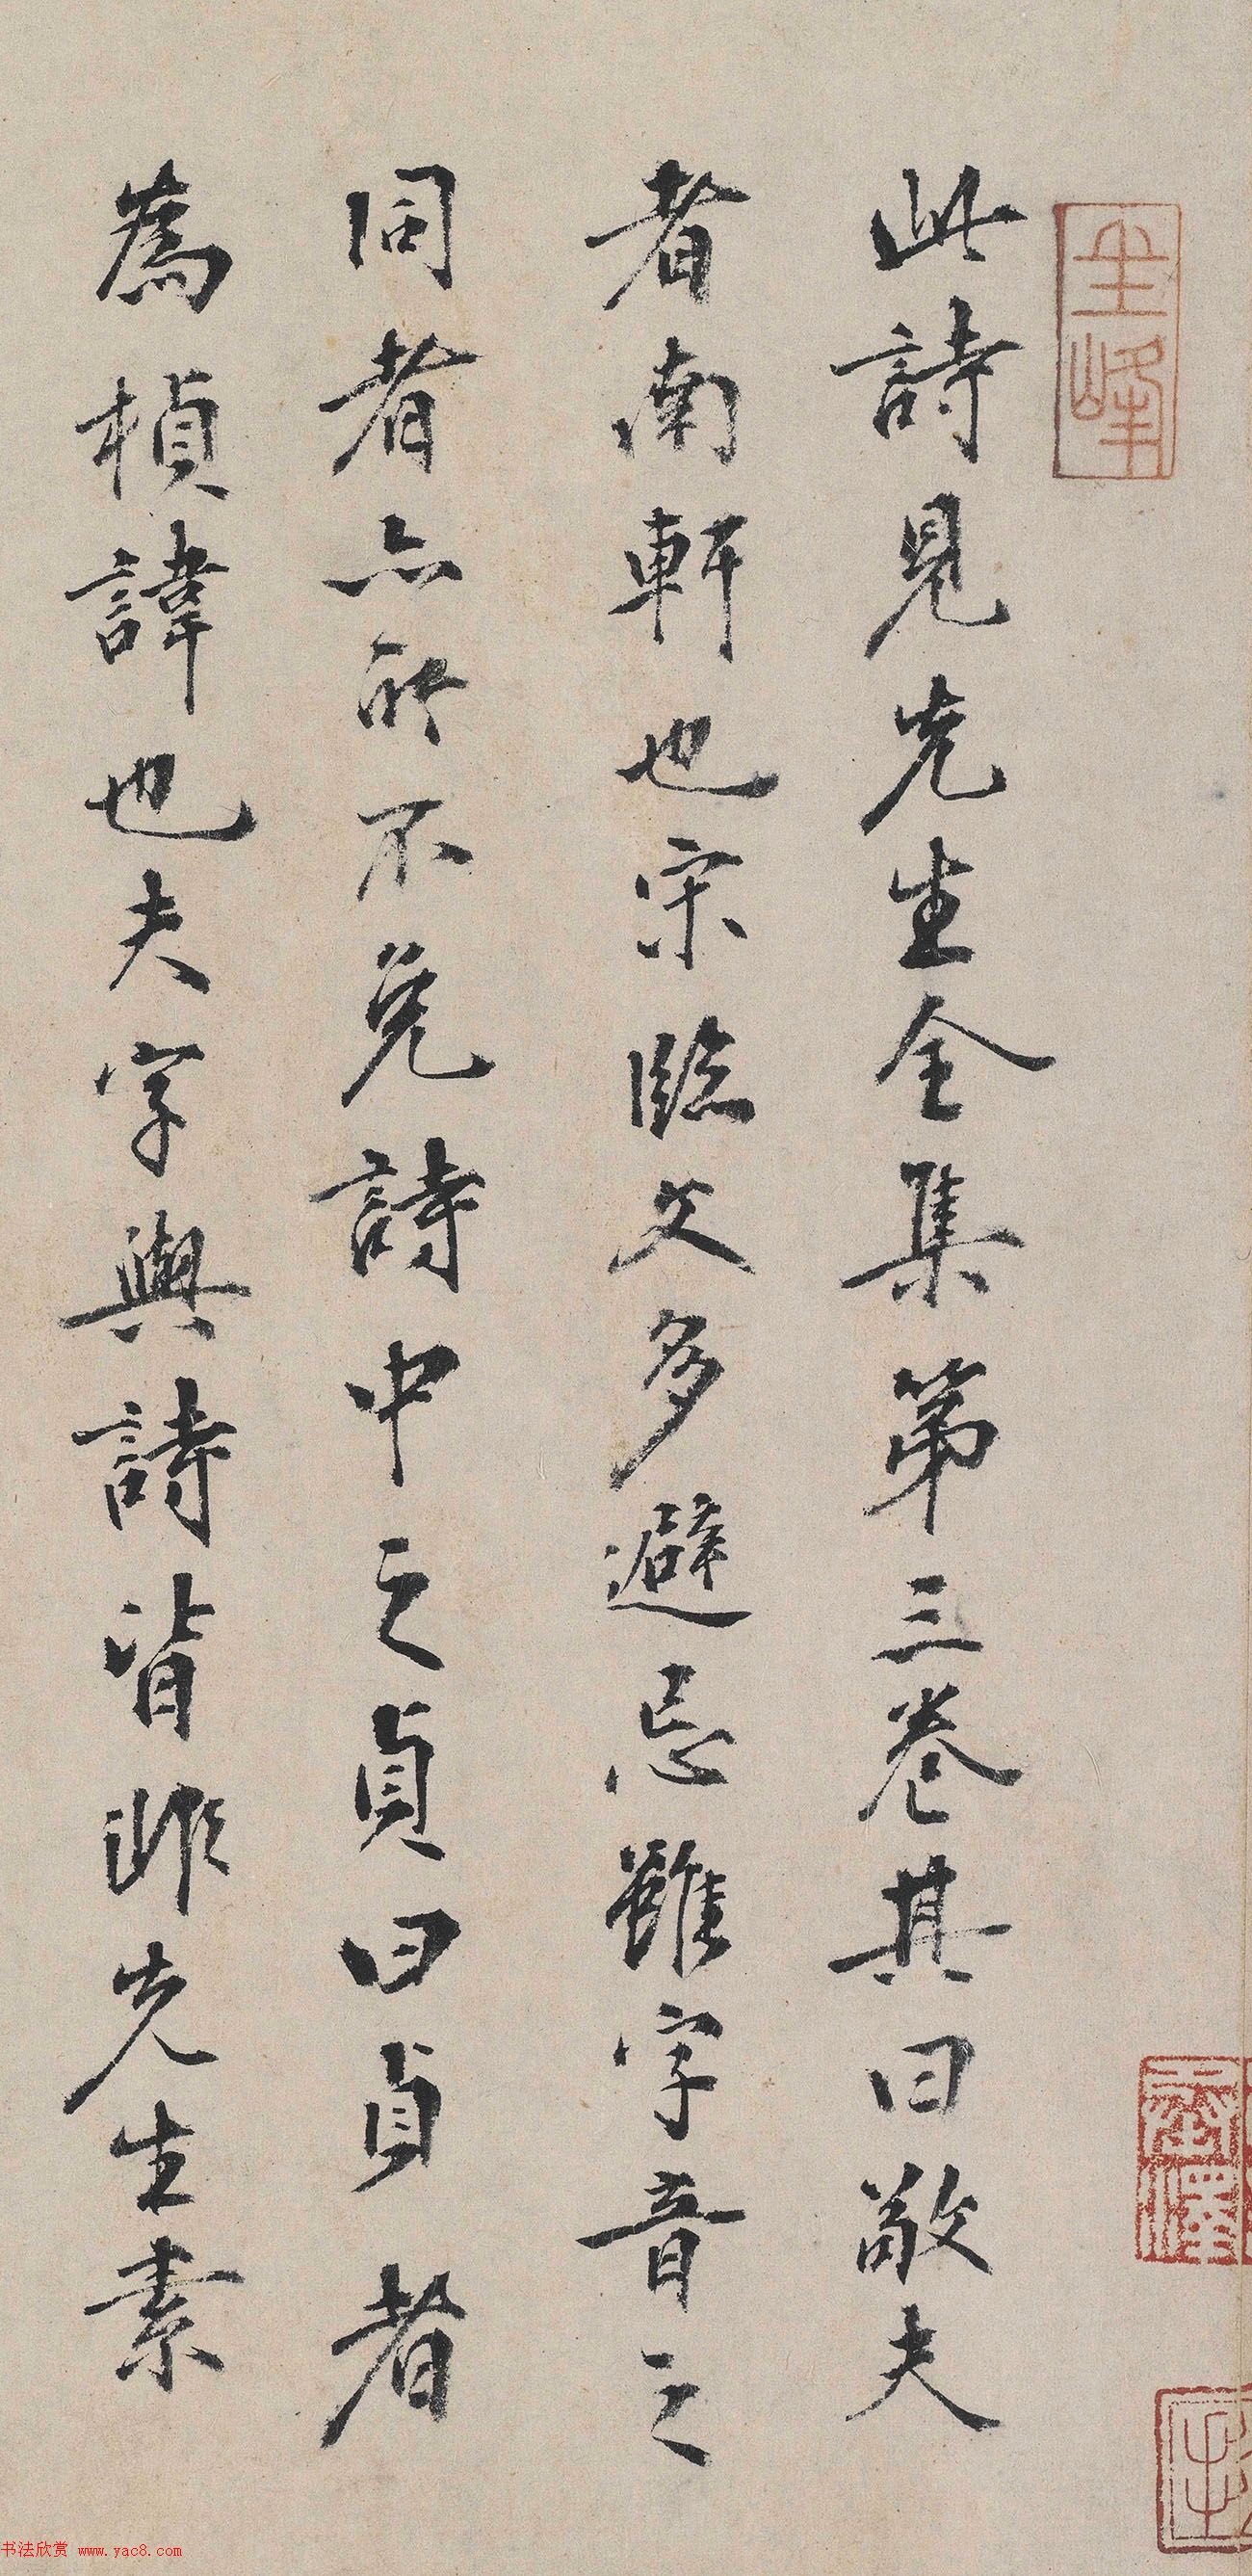 此詩見先生全集第三卷其曰敬夫
者南軒也宋臨文多避忌雖字音之
同者亦所不免詩中之貞曰貞者
為楨諱也夫字與詩皆非先生素
玉峰
书法欣赏 www.yac8.com